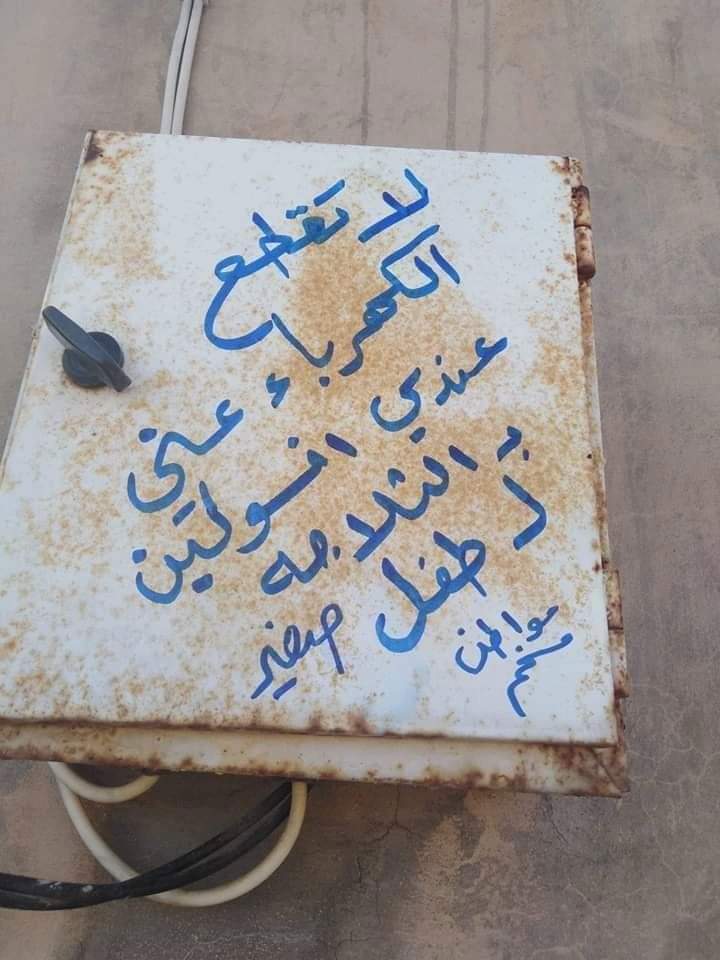 لا تقطع
الكهرباء عني
عندي انسولين
ب الثلاجه
ل طفل صغير
مواطن